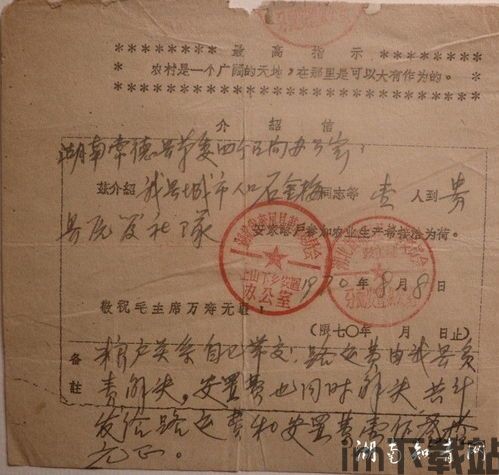 最高指示
农村是一个广阔的天地，在那里是可以大有作为的。
介绍信
湖南常德县革委四个面向办公室：
兹介绍 我县城市人口石金梅同志等 壹 人到 贵
县 社 队 安家落户参加农业生产希接洽为荷。
上山下乡安置
办公室
1970年8月8日
敬祝毛主席万寿无疆！
（限七〇年 月 日止）
备註
粮户关系自已带交，路运费由我县负
责解决，安置费也同时解决，共计
发给路运费和安置费壹佰
元正。
湖南知青网